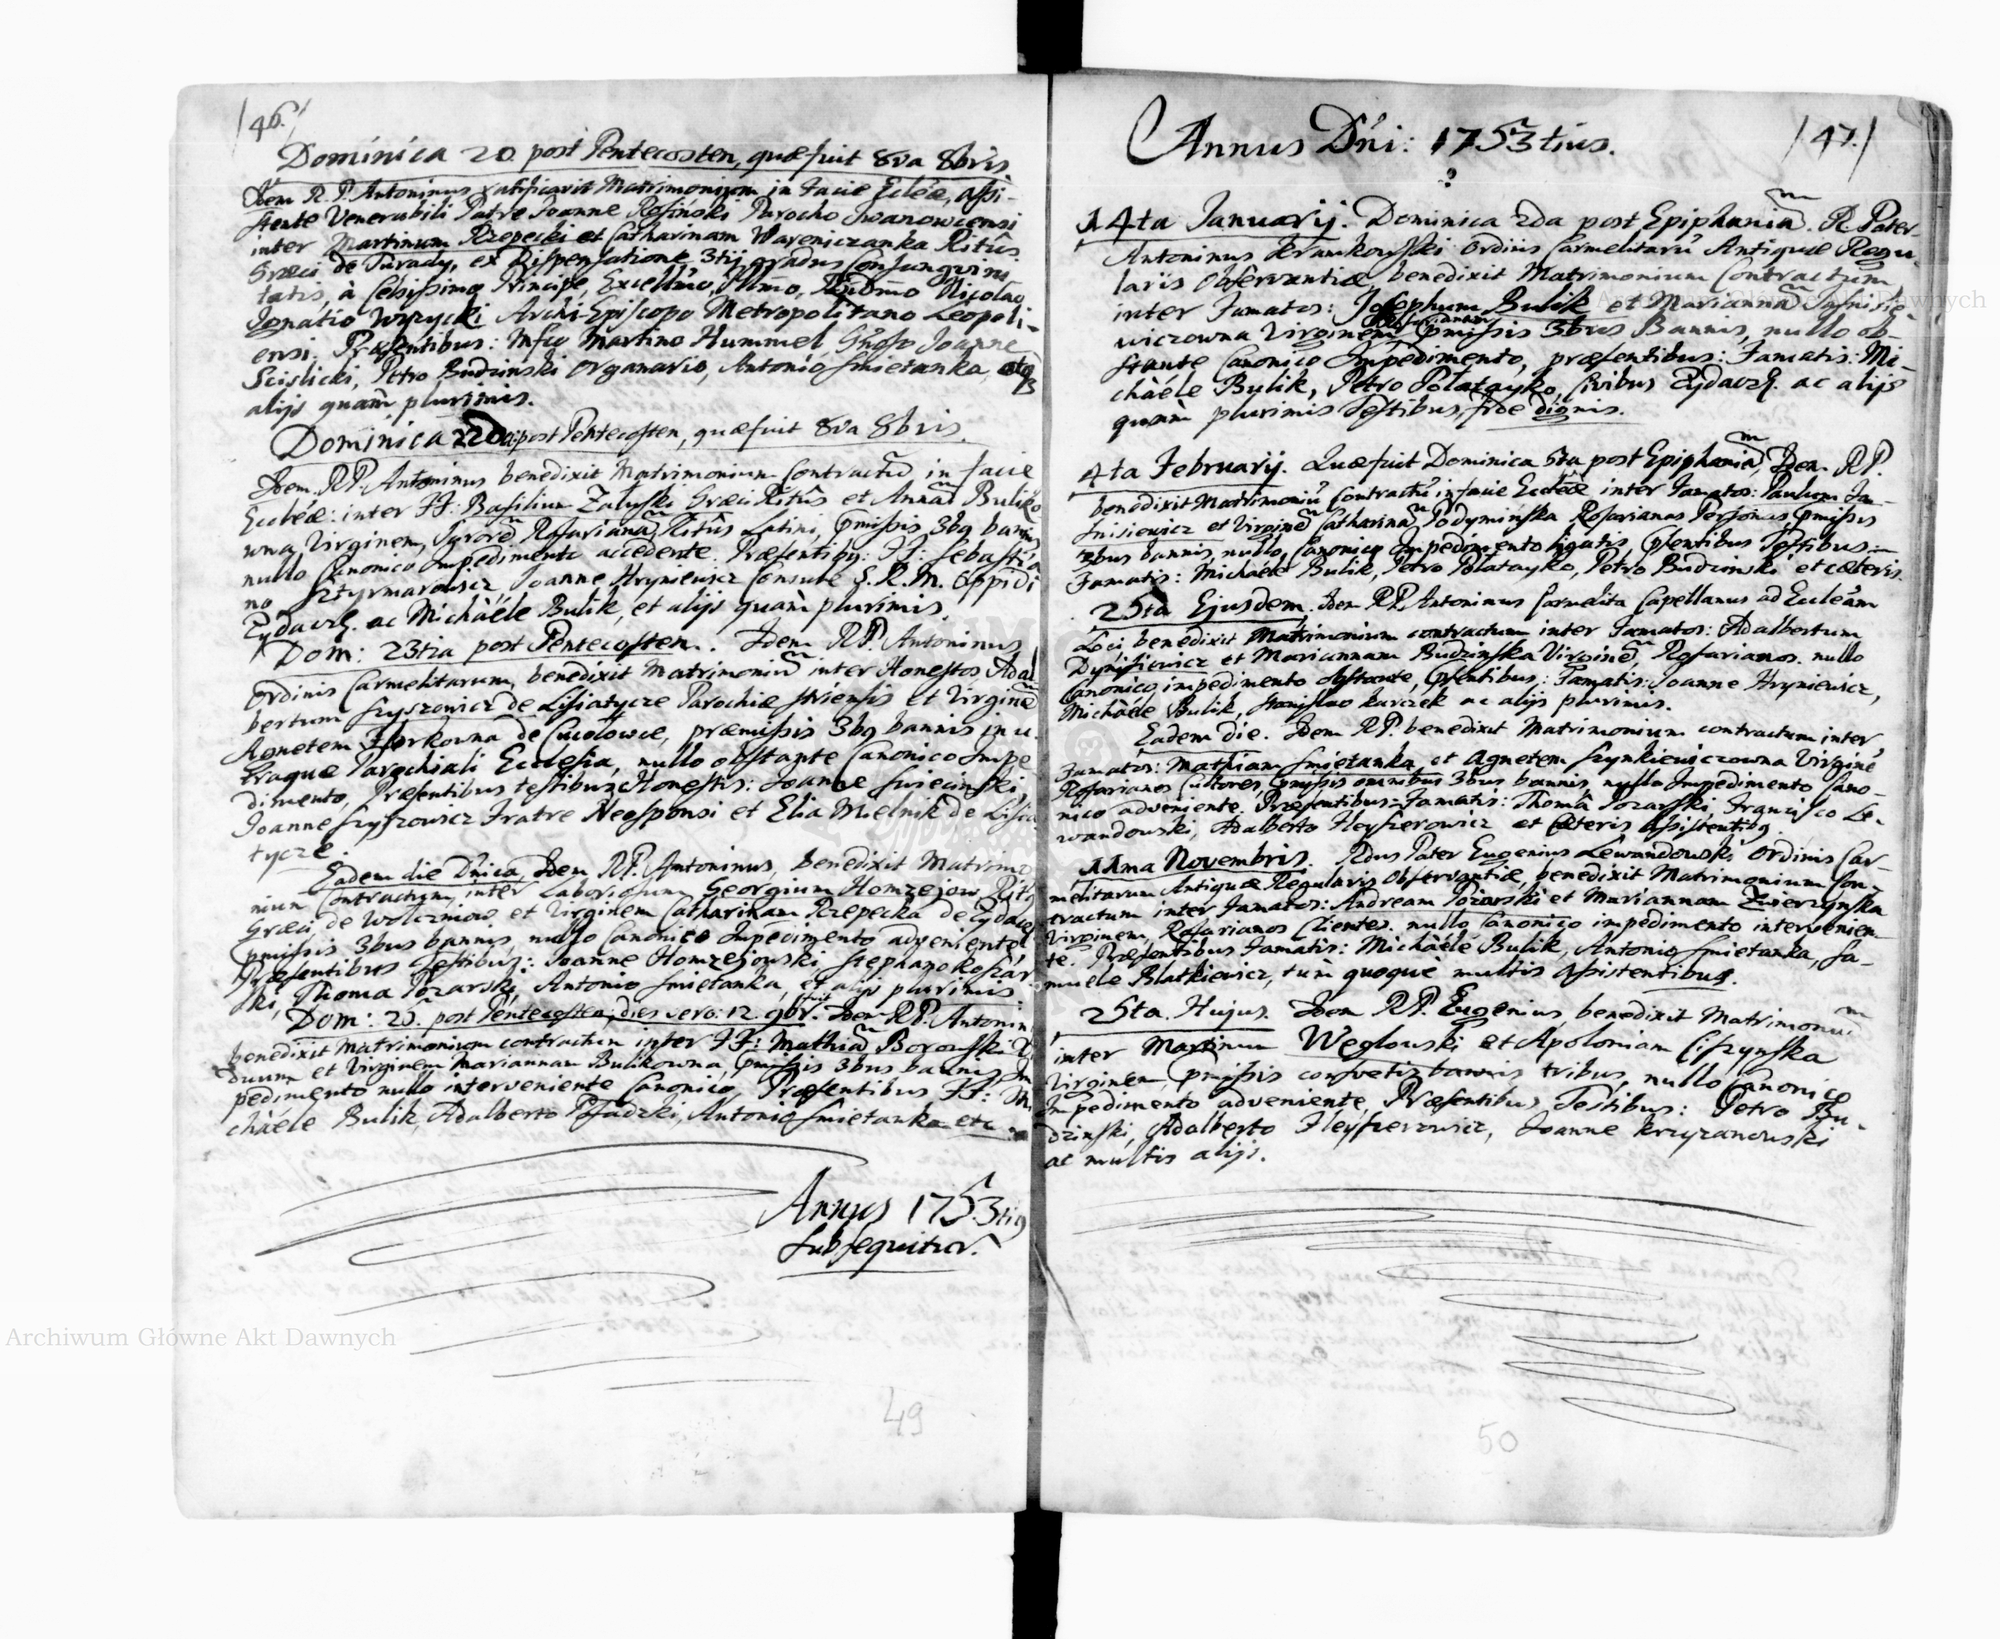 /46./
Dominica 20 post Pentecosten, quæ fuit 8va 8bris.
Idem R. P. Antoninus ratificavit Matrimonium in facie Eclæ, assi-
stente Venerabili Patre Joanne Rosiński Parocho Iwanowcensi
inter Martinum Rzepecki et Catharinam Wareniczanka Ritus
Græci de Turady, ex Dispensatione 3tij gradus Consangvini
tatis, à Celsissimo Principe, Excellmo, Illmo, Rndmo Nicolao
Ignatio Wyzycki Archi-Episcopo Metropolitano Leopoli-
ensi. Præsentibus: Martino Hummel, Gnoso Joanne
Scislicki, Petro Budzinski Organario, Antonio Smietanka, atq
alijs quam plurimis.
Dominica 22da post Pentecosten, quæ fuit 8va 8bris.
Idem R.P. Antoninus benedixit Matrimonium Contractu in facie
Eccleæ: inter FF: Basilium Zaluski Græci Ritûs et Annam Buliko
wna Virginem, Rosariana Ritûs Latini, pmissis 3bq bannis
nullo Canonico Impedimento accedente. Præsentibq: FF: Sebastia
no Sztyrmarowicz, Joanne Hryniewicz Consule S. R. M. Oppidi
Zydacz. ac Michàéle Bulik, et alijs quàm plurimis.
Dom: 23tia post Pentecosten. Idem R.P. Antoninus
Ordinis Carmelitarum, benedixit Matrimoniu inter Honestos Adal
bertum Szyszowicz de Lisiatycze Parochiæ Striensis et Virgine
Agnetem de Cucolowce, præmissis 3bq bannis in u-
traque Parochiali Ecclesia, nullo obstante Canonico Impe
dimento, Præsentibus testibus Honestis: Joanne Swiecinski,
Joanne Szyszowicz Fratre Neosponsi et Elia Mielnik de Lisia
tycze.
Eadem die Dnica, Idem R.P. Antoninus, benedixit Matrimo
nium Contractum, inter Laboriosum Georgium Homzejow Rit
Græci, de Wolczniow et Virginem Catharinam Rzepecka de Zydacz
pmissis 3bus bannis, nullo Canonico Impedimento adveniente.
Præsentibus Testibus: Joanne Homzejowski Stephano Koscar
ski, Thoma Pozarski, Antonio Smietanka, et alijs plurimis.
Dom: 25. post Pentecosten, dies vero: 12. 9br. Idem R.P. Antonin
benedixit Matrimonium contractum inter FF: Mathia Borowski Vi
duum et Virginem Mariannam Bulikowna, pmissis 3bus bannis Im
pedimento nullo interveniente Canonico, Præsentibus FF: Mi
chàéle Bulik, Adalberto Posadzki, Antonio Smietanka etc.
Annus 1753tiq
Subsequitur.
49
Annus Dni: 1753tius.
/47./
14ta Januarij. Dominica 2da post Epiphania. R. Pater
Antoninus Kramkowski Ordinis Carmelitaru Antiquæ Regu-
laris Observantiæ, benedixit Matrimonium Contractum
inter Famatos: Josephum Bulik et Marianna Dysisie-
wiczowna Virginem pmissis 3bus Bannis, nullo ob-
stante Canonico Impedimento, præsentibus: Famatis: Mi-
chàéle Bulik, Petro Polatayko, Civibus Zydacz. ac alijs
quàm plurimis Testibus fide dignis.
4ta Februarij. Quæ fuit Dominica 5ta post Epiphania, Idem R.P.
benedixit Matrimoniu Contractu in facie Eccleæ inter Famatos: Paulum Ja-
snisiewicz et Virgine Catharina Podyminska Rosarianas Personas, pmissis
3bus bannis, nullo Canonico Impedimento ligatis, psentibus Testibus:
Famatis: Michàéle Bulik, Petro Polatayko, Petro Budzinski et cæteris.
25ta Ejusdem. Idem R.P. Antoninus Carmelita Capellanus ad Eccleam
Loci, benedixit Matrimonium contractum inter Famatos: Adalbertum
Dysisiewicz et Mariannam Budzinska Virgine, Rosarianos. nullo
Canonico impedimento obstante, psentibus: Famatis: Joanne Hryniewicz,
Michàéle Bulik, Stanislao Kurczek ac alijs plurimis.
Eadem die. Idem R.P. benedixit Matrimonium contractum inter
Famatos: Mathiam Smietanka, et Agnetem Szynkiewiczowna Virgine
Rosarianos Cultores, pmissis omnibus 3bus bannis, nullo Impedimento Cano-
nico adveniente, Præsentibus: Famatis: Thoma Pozarski, Francisco Le-
wandowski, Adalberto Fleyszerowicz et Cæteris Assistentibq.
11ma Novembris. Rdus Pater Eugenius Lewandowski Ordinis Car-
melitarum Antiquæ Regularis Observantiæ, benedixit Matrimonium Con-
tractum inter Famatos: Andream Pozarski et Mariannam Zwierzynska
Virginem, Rosarianos Clientes. nullo Canonico impedimento intervenien-
te. Præsentibus Famatis: Michàéle Bulik, Antonio Smietanka, Sa-
muele Blatkiewicz, tum quoque multis Assistentibus.
25ta. Hujus. Idem R.P. Eugenius, benedixit Matrimoniu
inter Martinum Węglowski et Apoloniam Ciszynska
Virginem, pmissis consvetis bannis tribus, nullo Canonico
Impedimento adveniente, Præsentibus Testibus: Petro Bu-
dzinski, Adalberto Fleyszerowicz, Joanne Krzyzanowski
ac multis alijs.
50
Archiwum Główne Akt Dawnych
Archiwum Główne Akt Dawnych